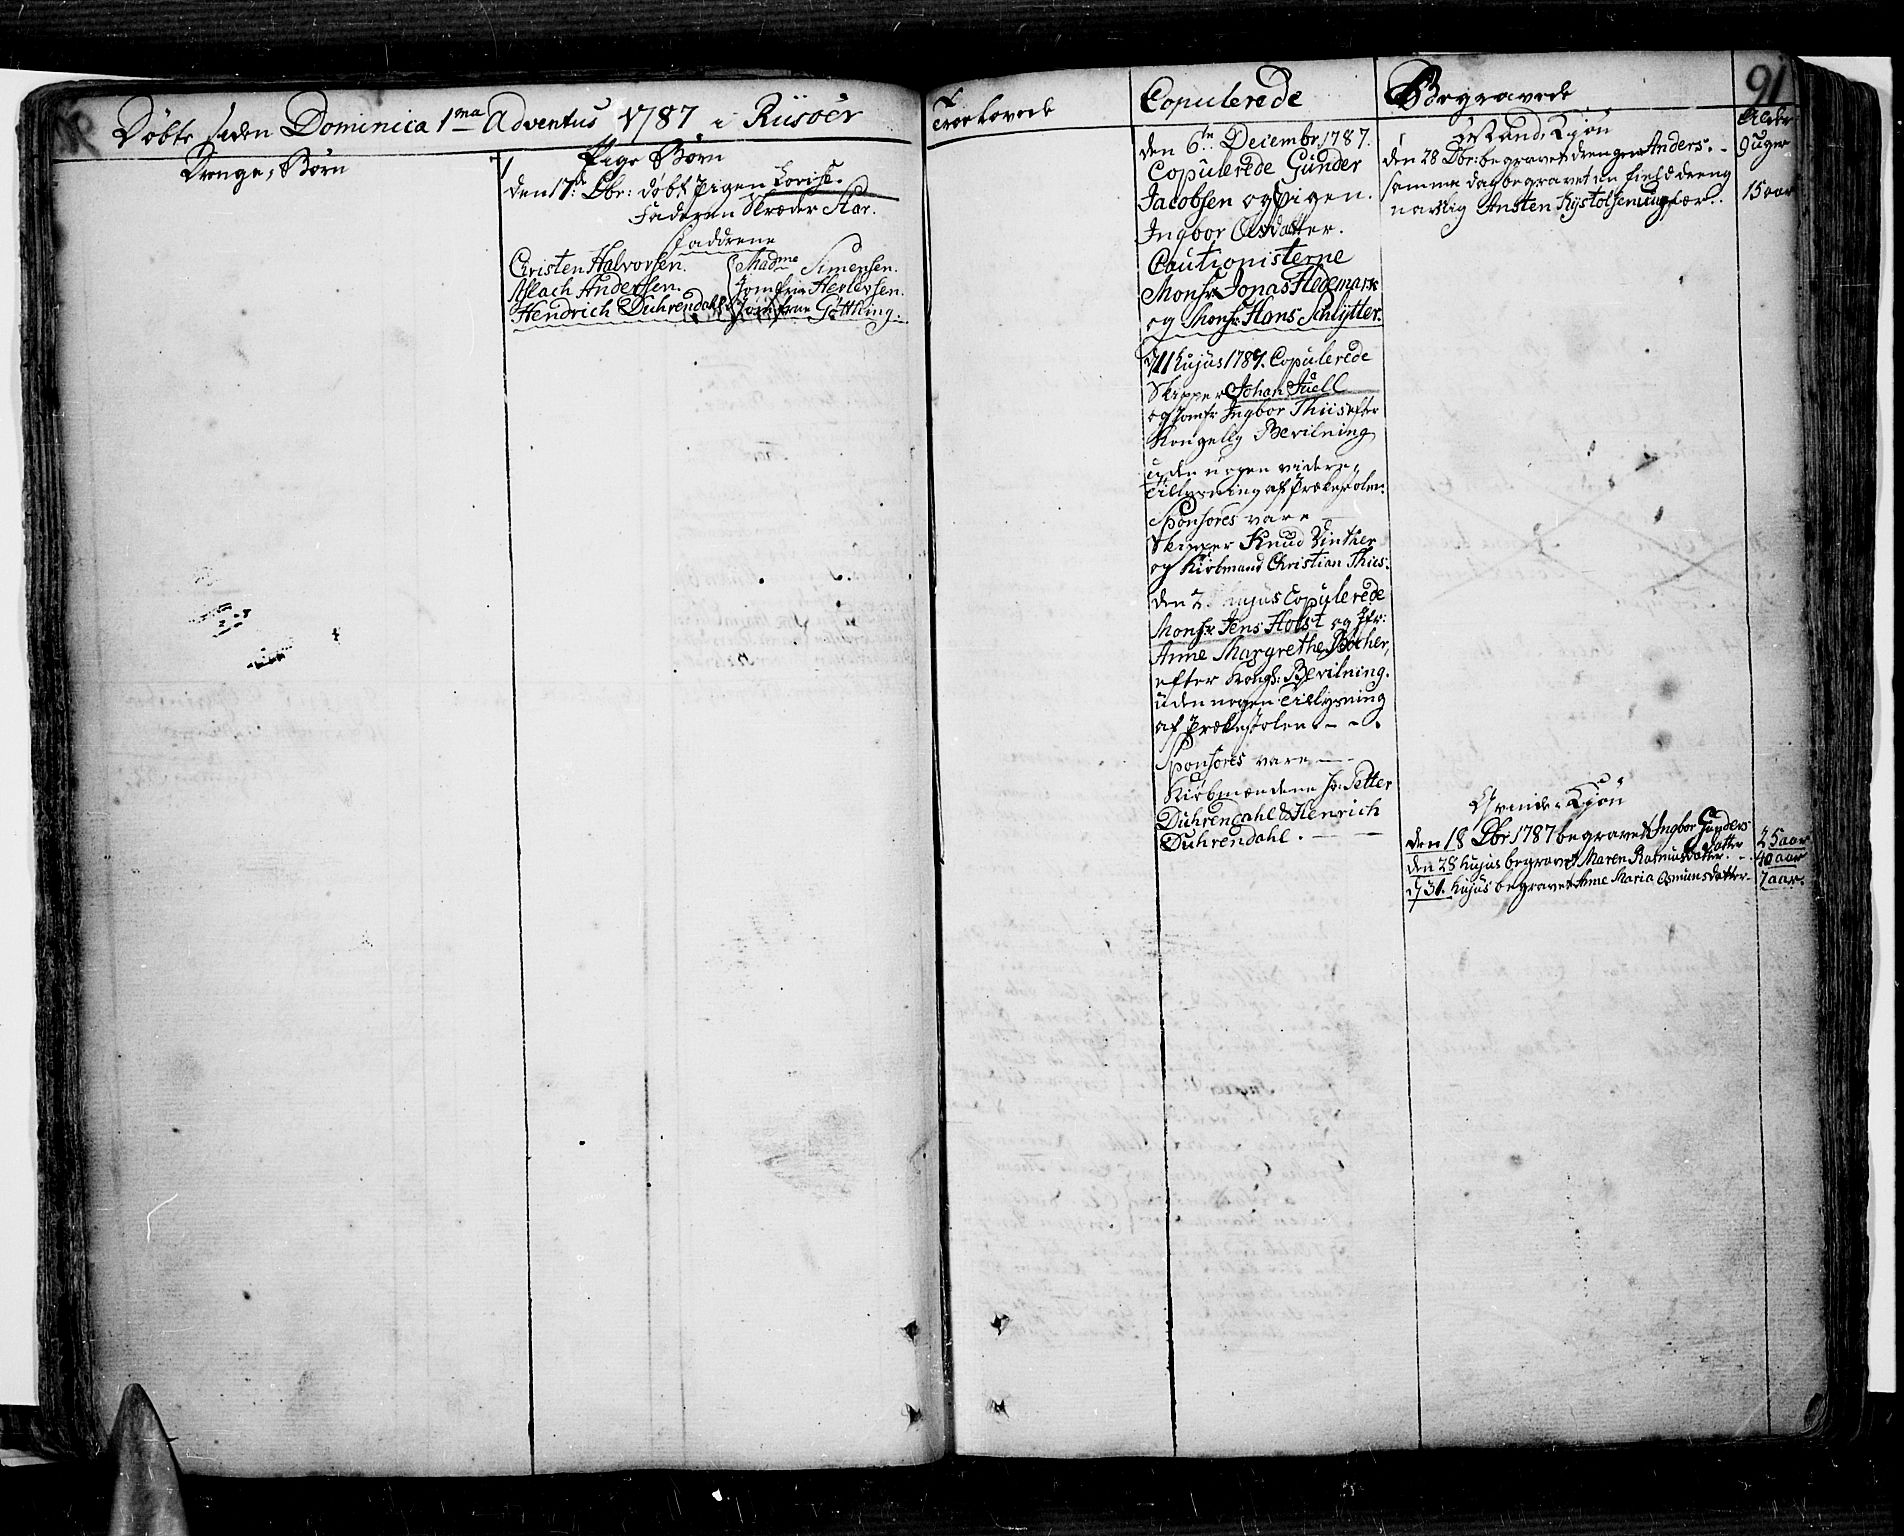 Døbte siden Dominica 1ma Adventus 1787 i Riisøer
Drenge, Børn
Pige Børn
den 17de Dbr: døbt Pigen Lovise.
Faderen Skræder Aar.
Faddrene
Christen Halvorsen.
Aslach Andersen.
Hendrich Duhrendahl
Madme Simensen.
Jomfrue Herlevsen.
Jomfrue Gøttking.
Troelovede
Copulerede
den 6te Decembr. 1787.
Copulerede Gunder
Jacobsen og Pigen.
Ingbor Olsdatter.
Cautionisterne
Monsr. Jonas Hedemark
og Monsr. Hans Schlytter.
d/11 hujus 1787. Copulerede
Skipper Johan Juell
og Jomfr Ingbor Thiis efter
Kongelig Bevilning
uden nogen videre
Tillysning af Prækestolen.
Sponsores vare
Skipper Knud Vinther
og Kiøbmand Christian Thiis.
den 2 hujus Copulerede
Monsr. Jens Holst og Jfr:
Anne Margrethe
efter Kongl: Bevilning.
uden nogen Tillysning
af Prækestolen. - - .
Sponsores vare -
Kiøbmændene hr: Petter
Duhrendahl & Henrich
Duhrendahl. - -
Begravede
91
Alder
Mand, Kjøn
den 28 Dbr: begravet drengen Anders. -
9 uger
samme dag begravet en field dreng
navnlig Ansten
15 aar
Qvinde, Kjøn
den 18 Dbr 1787 begravet Ingbor Gunders
datter
25 aar
den 28 hujus begravet Maren Rasmusdatter. -
40 aar
d/31. hujus begravet Anne Maria Osmunsdatter.
7 aar.